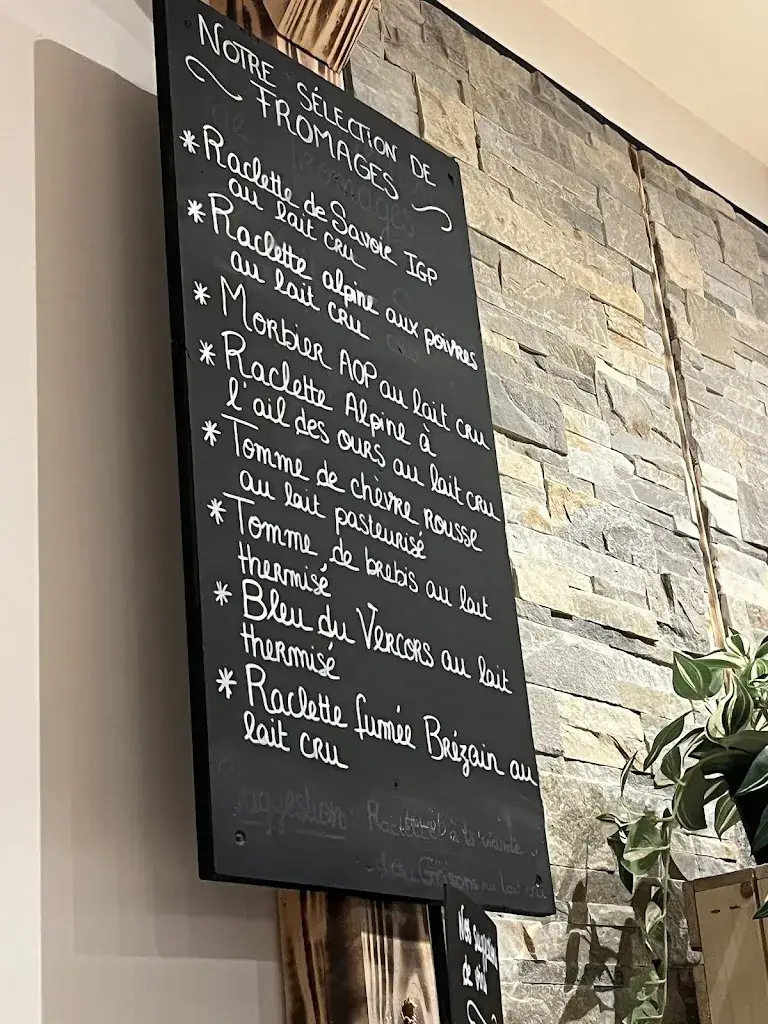 NOTRE SÉLECTION DE
FROMAGES
* Raclette de Savoie IGP
au lait cru
* Raclette alpine aux poivres
au lait cru
* Morbier AOP au lait cru
* Raclette Alpine à
l'ail des ours au lait cru
* Tomme de chèvre rousse
au lait pasteurisé
* Tomme de brebis au lait
thermisé
* Bleu du Vercors au lait
thermisé
* Raclette fumée Brézain au
lait cru
Raclette à la viande
des Grisons au lait cru
Nos
de vin